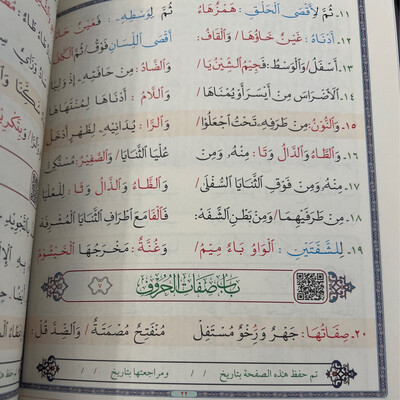 ١١. ثُمَّ لِأَقْصَى الْحَلْقِ: هَمْزُهَاءُ ثُمَّ لِوَسْطِهِ:
١٢. أَدْنَاهُ: غَيْنٌ خَاؤُهَا/ وَالْقَافُ: أَقْصَى اللِّسَانِ فَوْقُ/ ثُمَّ
١٣. أَسْفَلُ/ وَالْوَسْطُ: فَجِيمُ الشِّينُ يَا/ وَالضَّادُ: مِنْ حَافَتِهِ/ إِذْ
١٤. الْاضْرَاسَ مِنْ أَيْسَرَ أَوْ يُمْنَاهَا/ وَاللَّامُ: أَدْنَاهَا لِمُنْتَهَاهَا
١٥. وَالنُّونُ: مِنْ طَرَفِهِ تَحْتُ اجْعَلُوا/ وَالرَّا: يُدَانِيهِ لِظَهْرٍ أَدْخَلُ
١٦. وَالطَّاءُ وَالدَّالُ وَتَا: مِنْهُ، وَمِنْ عُلْيَا الثَّنَايَا/ وَالصَّفِيرُ: مُسْتَكِنّ
١٧. مِنْهُ، وَمِنْ فَوْقِ الثَّنَايَا السُّفْلَى/ وَالظَّاءُ وَالذَّالُ وَثَا: لِلْعُلْيَا
١٨. مِنْ طَرَفَيْهِمَا/ وَمِنْ بَطْنِ الشَّفَهْ: فَالْفَا مَعَ اطْرَافِ الثَّنَايَا الْمُشْرِفَهْ
١٩. لِلشَّفَتَيْنِ: الْوَاوُ بَاءٌ مِيمُ/ وَغُنَّةٌ: مَخْرَجُهَا الْخَيْشُومُ
بَابُ صِفَاتِ الْحُرُوفِ
٧
٢٠. صِفَاتُهَا: جَهْرٌ وَرِخْوٌ مُسْتَفِلْ مُنْفَتِحٌ مُصْمَتَةٌ/ وَالضِّدَّ قُلْ:
تم حفظ هذه الصفحة بتاريخ / / ومراجعتها بتاريخ / /
٢٢